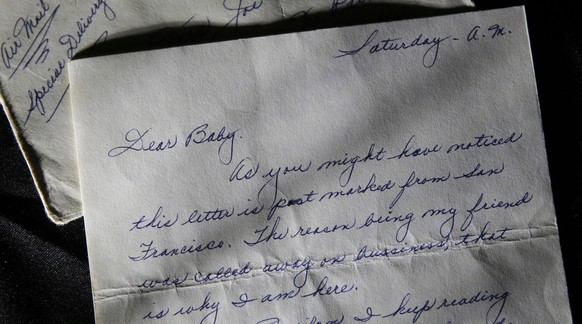 Air Mail
Special Delivery
Joe
Saturday - A.M.
Dear Baby.
As you might have noticed
this letter is post marked from San
Francisco. The reason being my friend
was called away on bussiness, that
is why I am here.
I keep reading